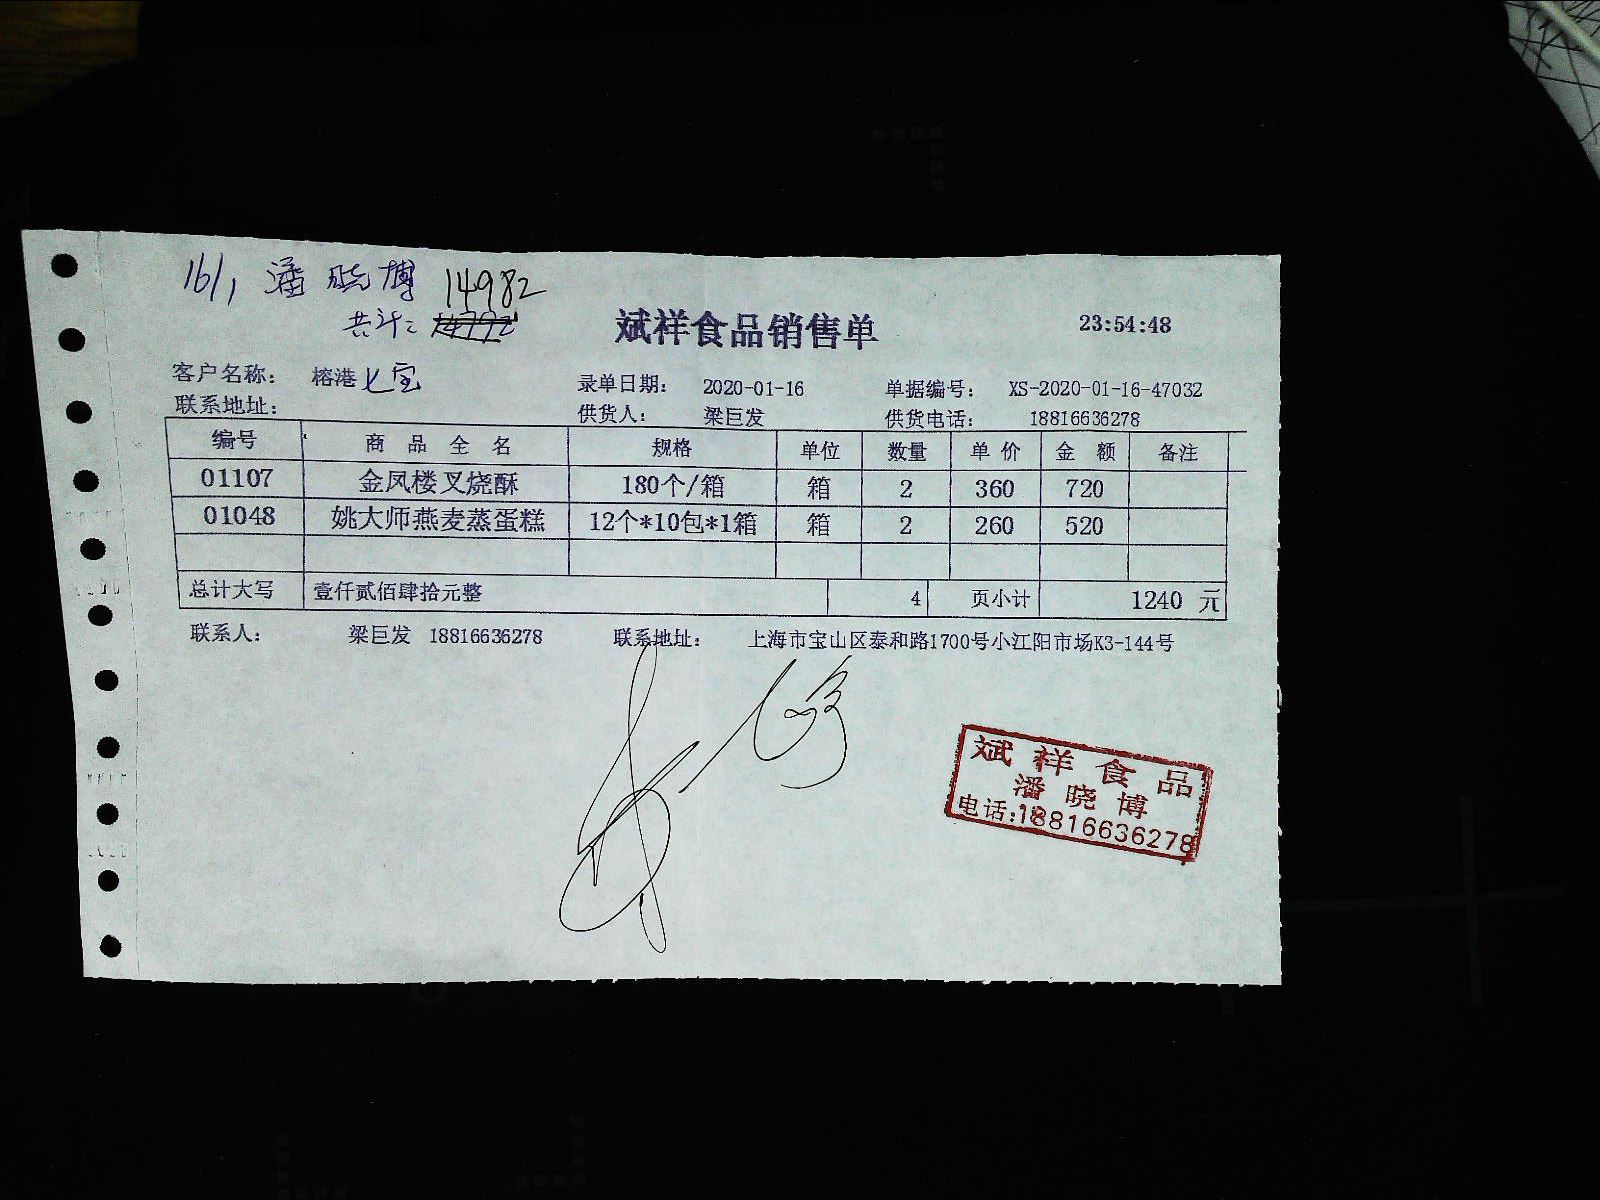 16/1 潘晓博 14982
共计:
斌祥食品销售单 23:54:48
客户名称: 榕港七宝 录单日期: 2020-01-16 单据编号: XS-2020-01-16-47032
联系地址: 供货人: 梁巨发 供货电话: 18816636278
编号 商品全名 规格 单位 数量 单价 金额 备注
01107 金凤楼叉烧酥 180个/箱 箱 2 360 720
01048 姚大师燕麦蒸蛋糕 12个*10包*1箱 箱 2 260 520
总计大写 壹仟贰佰肆拾元整 4 页小计 1240 元
联系人: 梁巨发 18816636278 联系地址: 上海市宝山区泰和路1700号小江阳市场K3-144号
斌祥食品
潘晓博
电话:18816636278